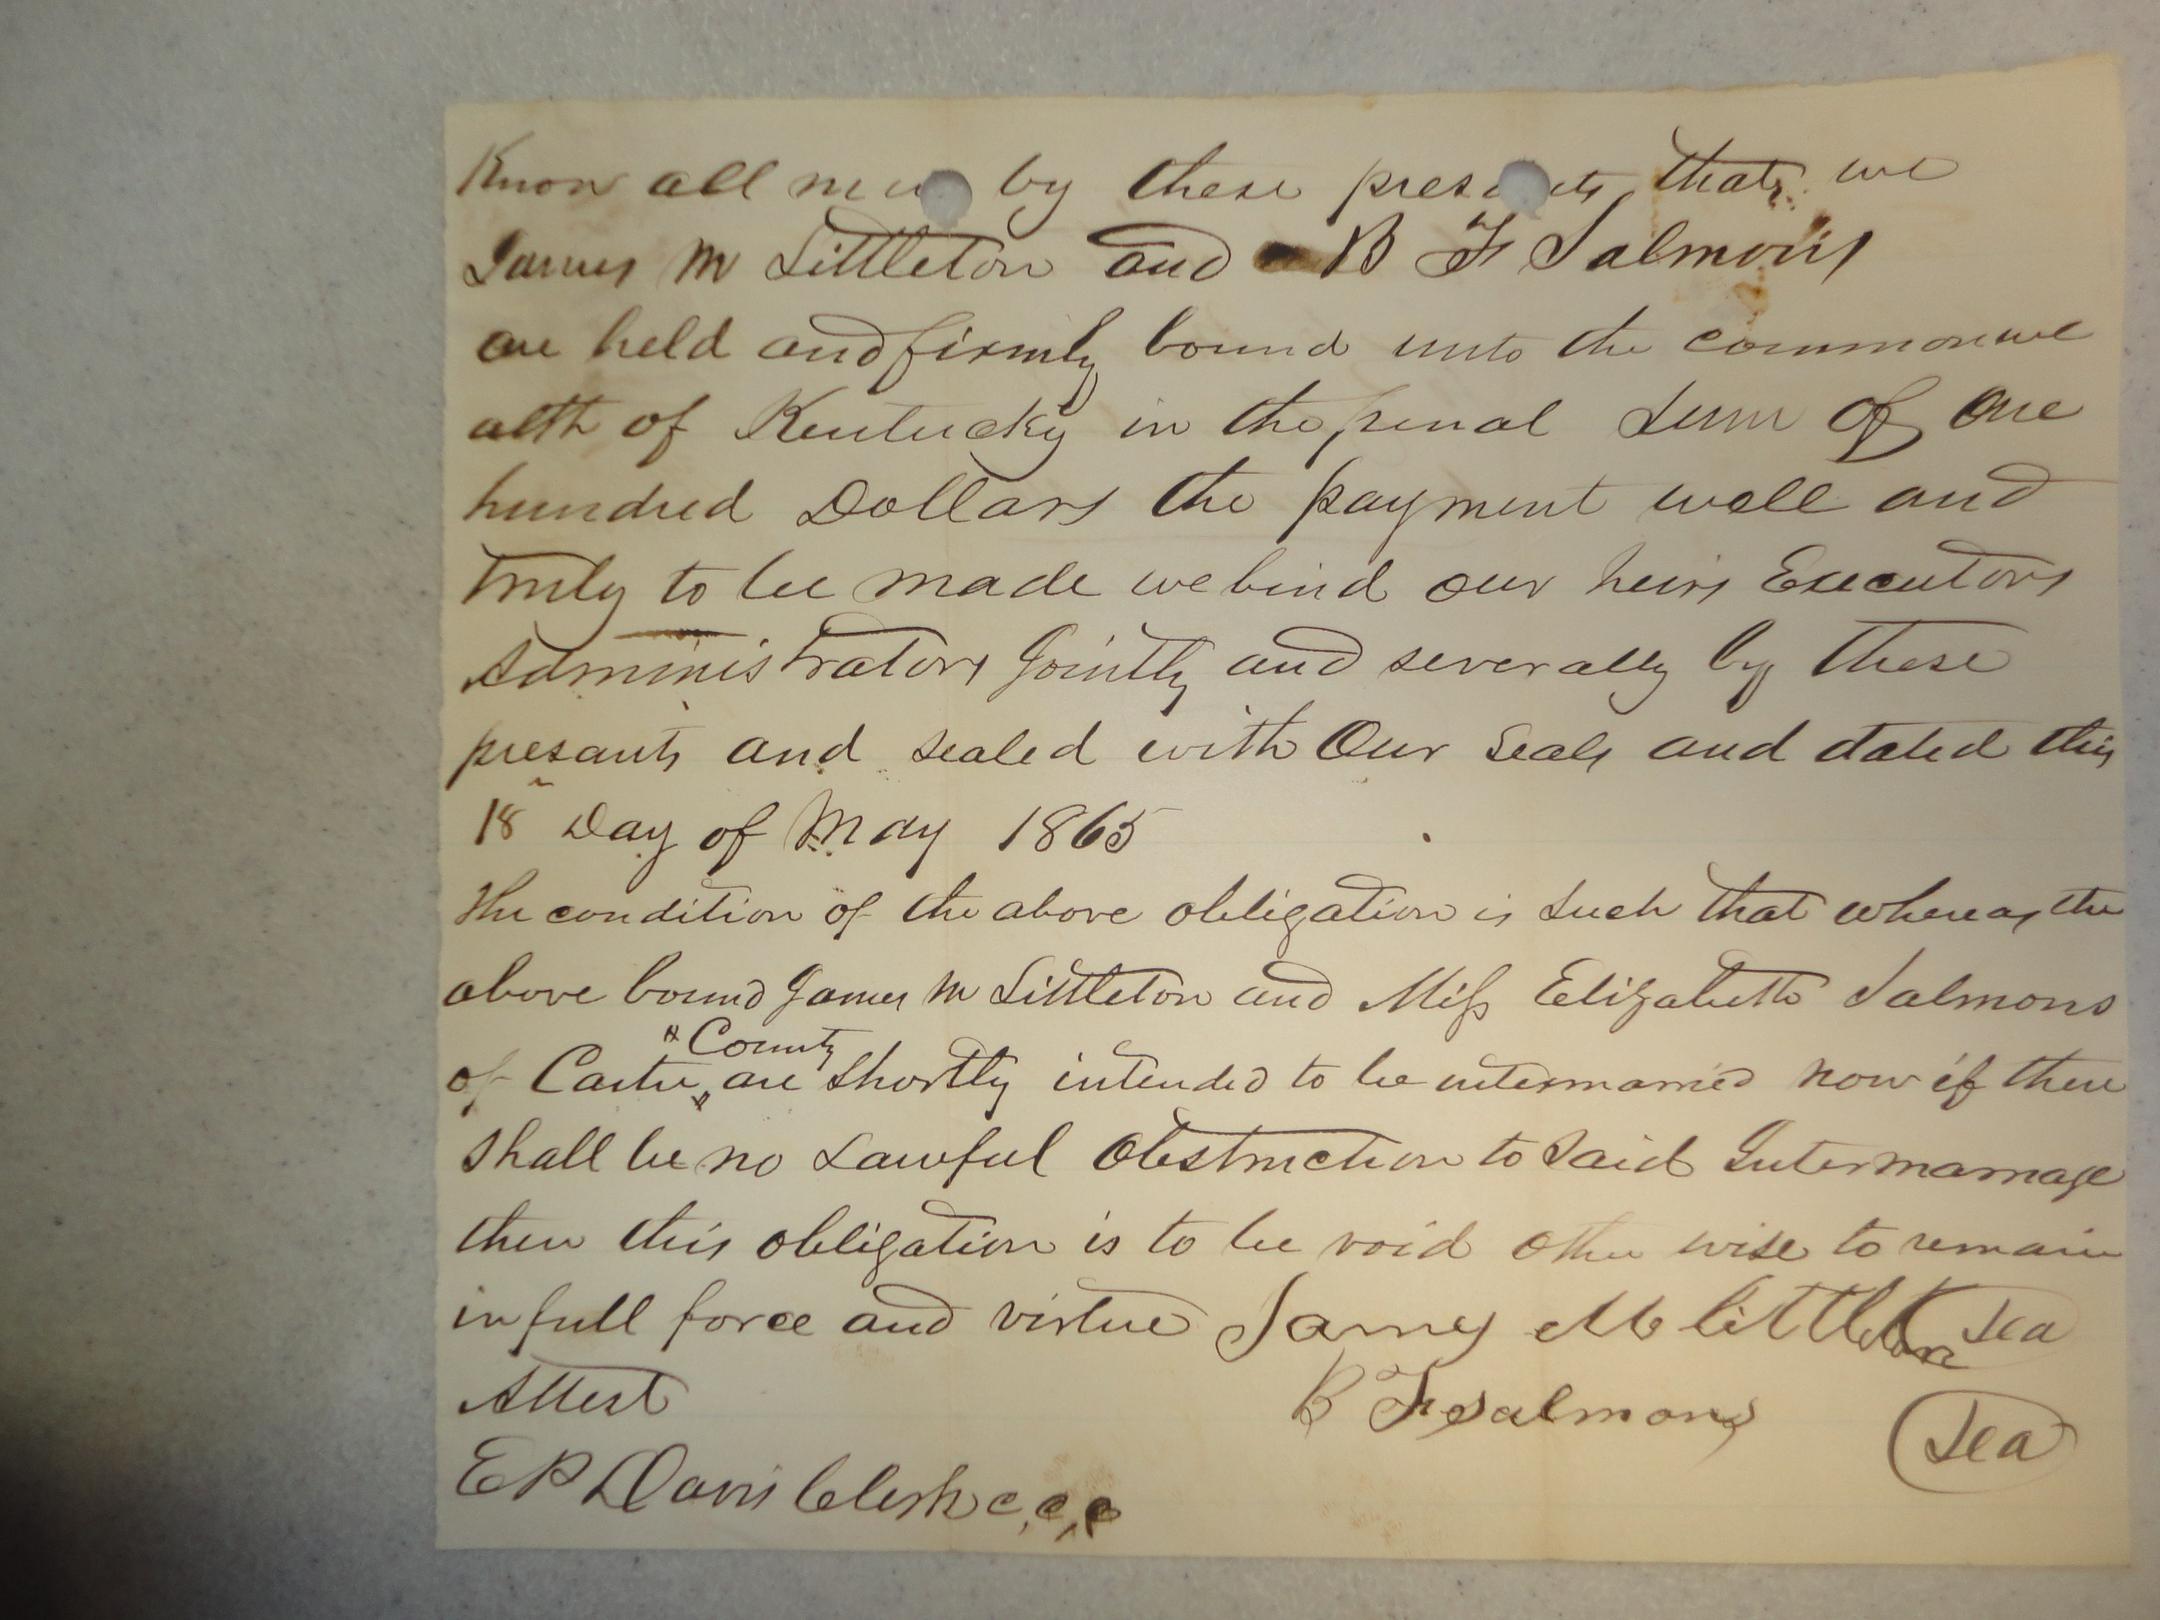 Know all men by these presents that we
James M Littleton and B F Salmons
are held and firmly bound unto the commonwe
alth of Kentucky in the penal Sum of One
hundred Dollars the payment well and
truly to be made we bind our heirs Executors
Administrators Jointly and severally by these
presants and sealed with Our Seals and dated this
18 Day of May 1865
The condition of the above obligation is Such that whereas the
above bound James M Littleton and Miss Elizabeth Salmons
County
of Carter are Shortly intended to be intermarried now if there
Shall be no Lawful Obstruction to Said Intermarriage
then this obligation is to be void other wise to remain
in full force and virtue James M littleton Sea
Attest B F Salmons Sea
E P Davis Clerk c,c,c